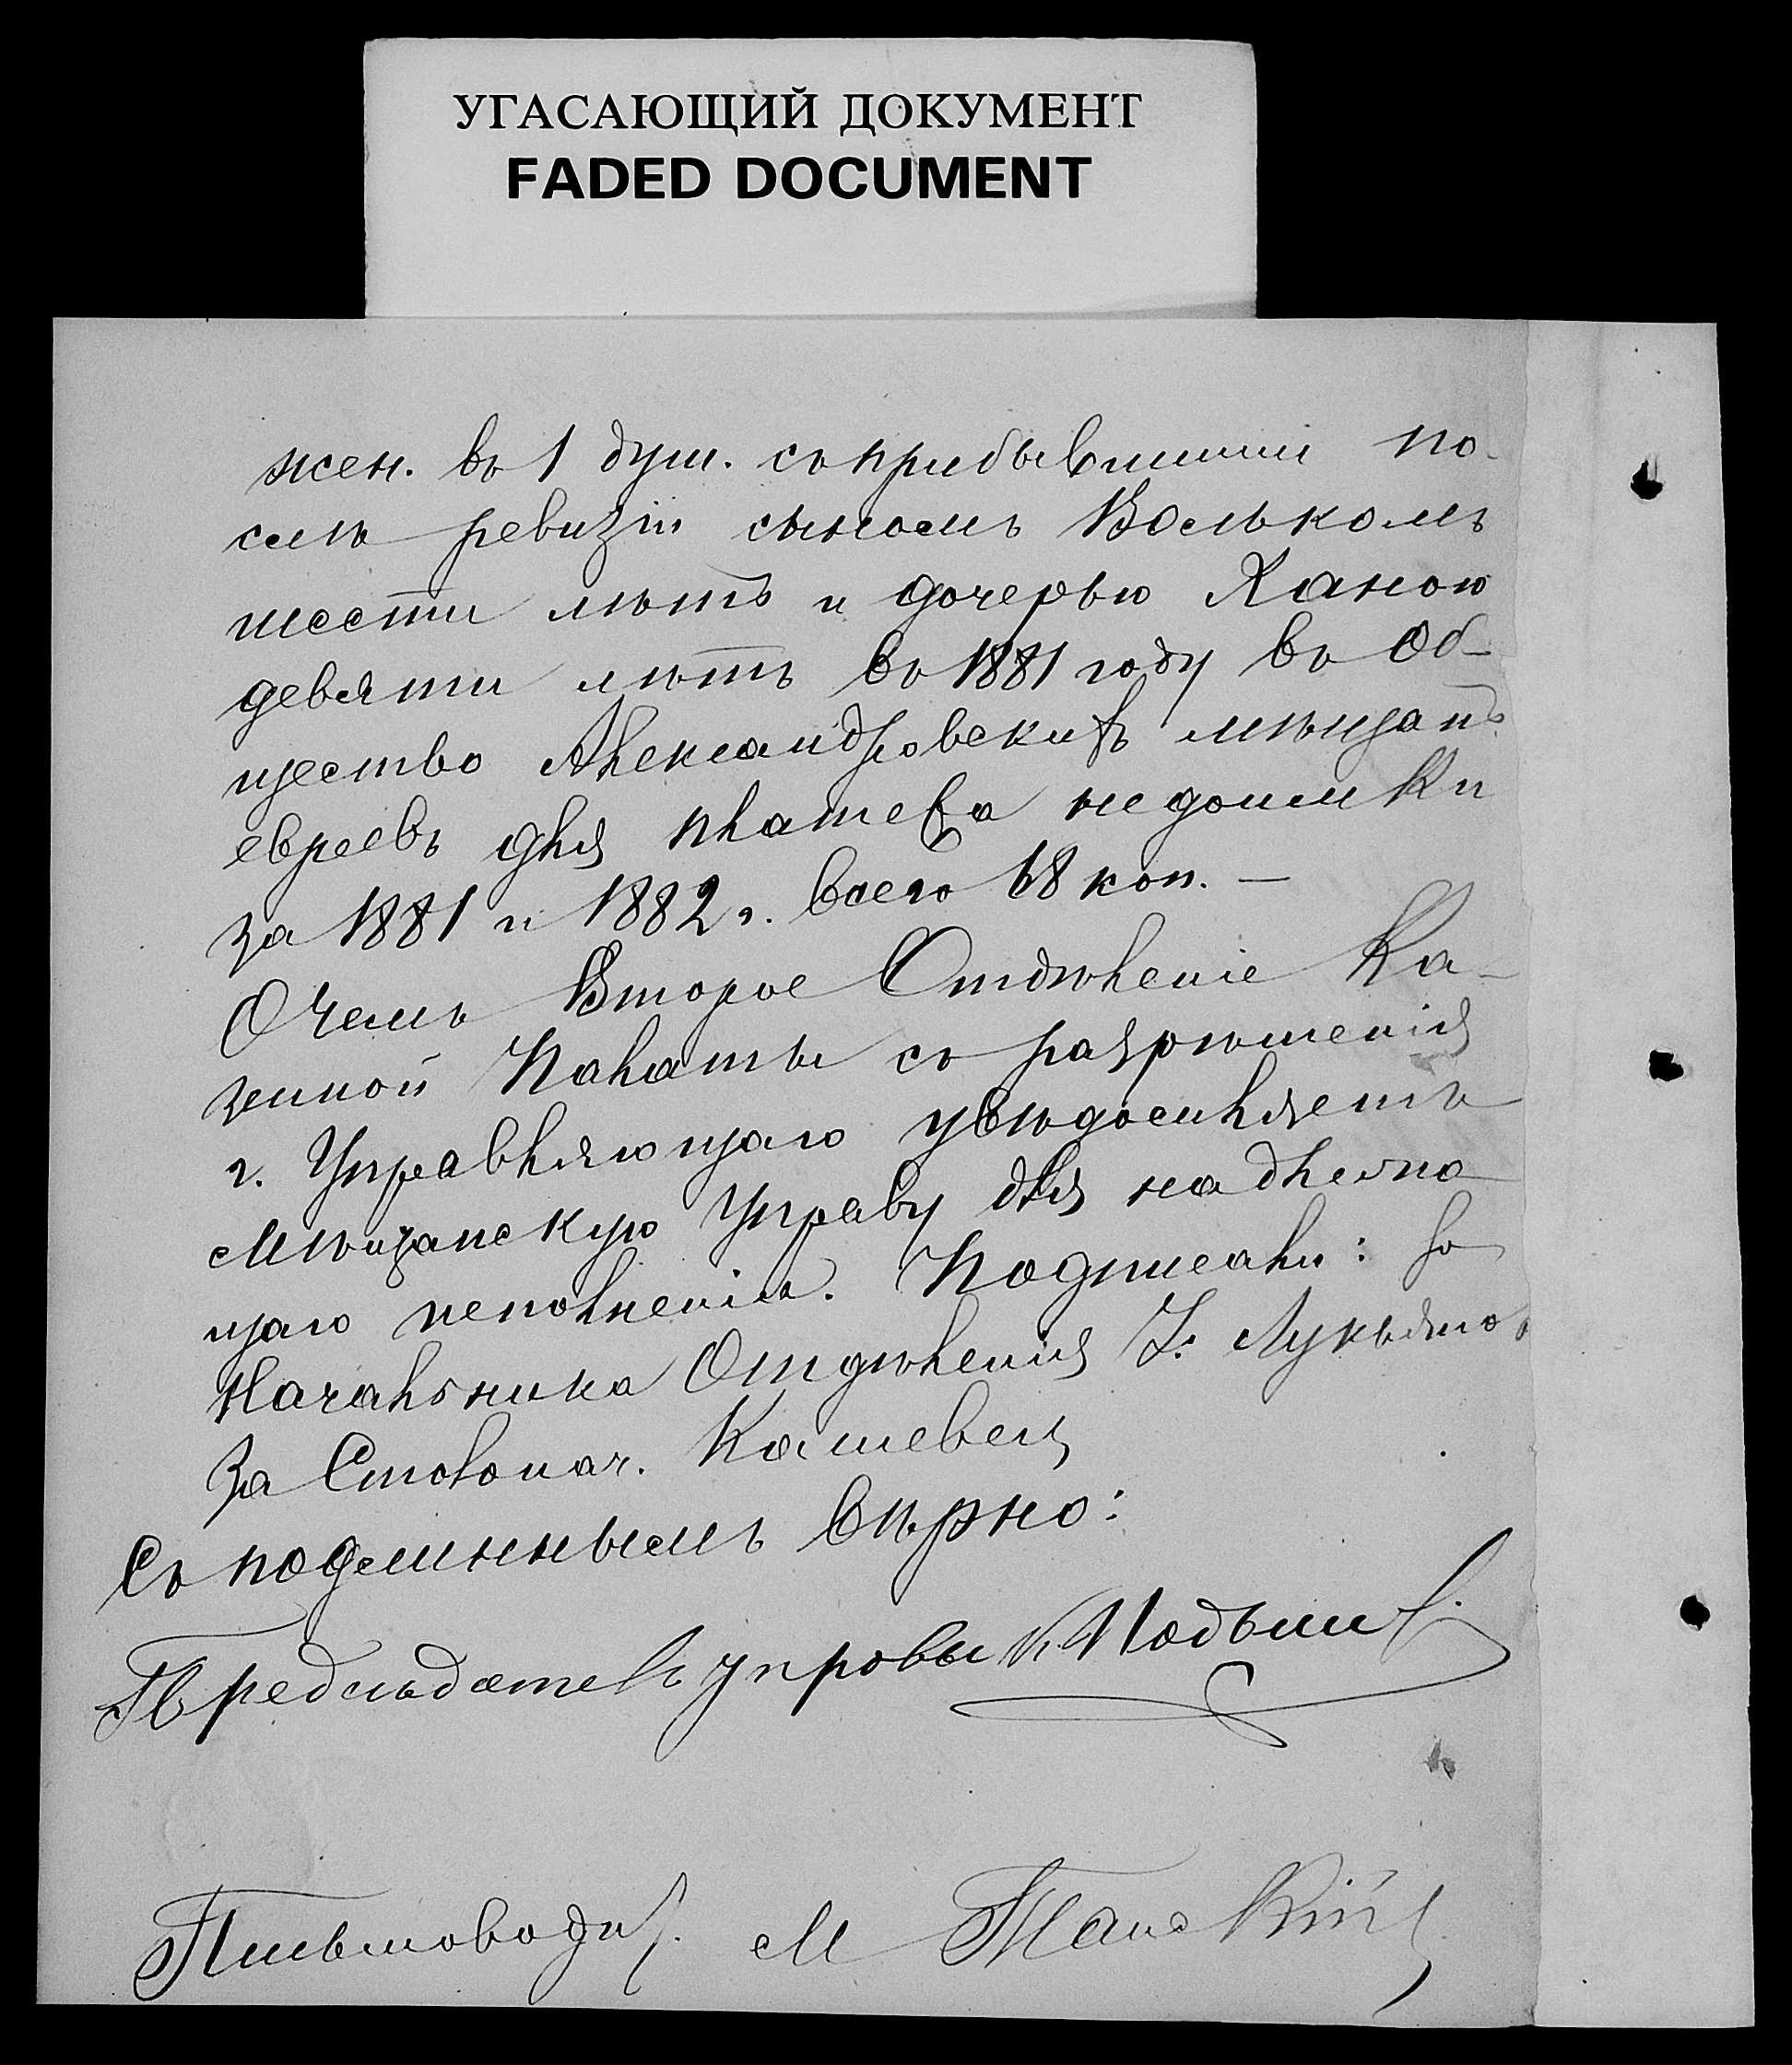 УГАСАЮЩИЙ ДОКУМЕНТ
FADED DOCUMENT
жен. въ 1 душ. съ прибывшими по-
слѣ ревизіи сыномъ Волькомъ
шести лѣтъ и дочерью Ханою
девяти лѣтъ въ 1881 году въ Об-
щество Александровскихъ мѣщанъ
евреевъ для платежа недоимки
за 1881 и 1882 г. всего 68 коп. —
О чемъ Второе Отдѣленіе Ка-
зенной Палаты съ разрѣшенія
г. Управляющаго увѣдомляетъ
Мѣщанскую Управу для надлежа
щаго исполненія. Подписали: за
Начальника Отдѣленія Лукьяно
За Столонач. Кашевец
Съ подлиннымъ вѣрно:
Предсѣдатель управы
Письмоводит. М